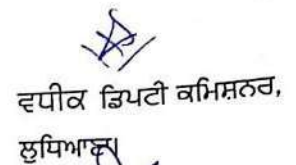 ਵਧੀਕ ਡਿਪਟੀ ਕਮਿਸ਼ਨਰ,
ਲੁਧਿਆਣਾ।